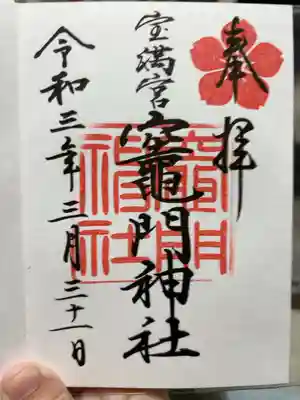 奉拝
宝満宮
竈門神社
令和三年三月三十一日
竈門
神社